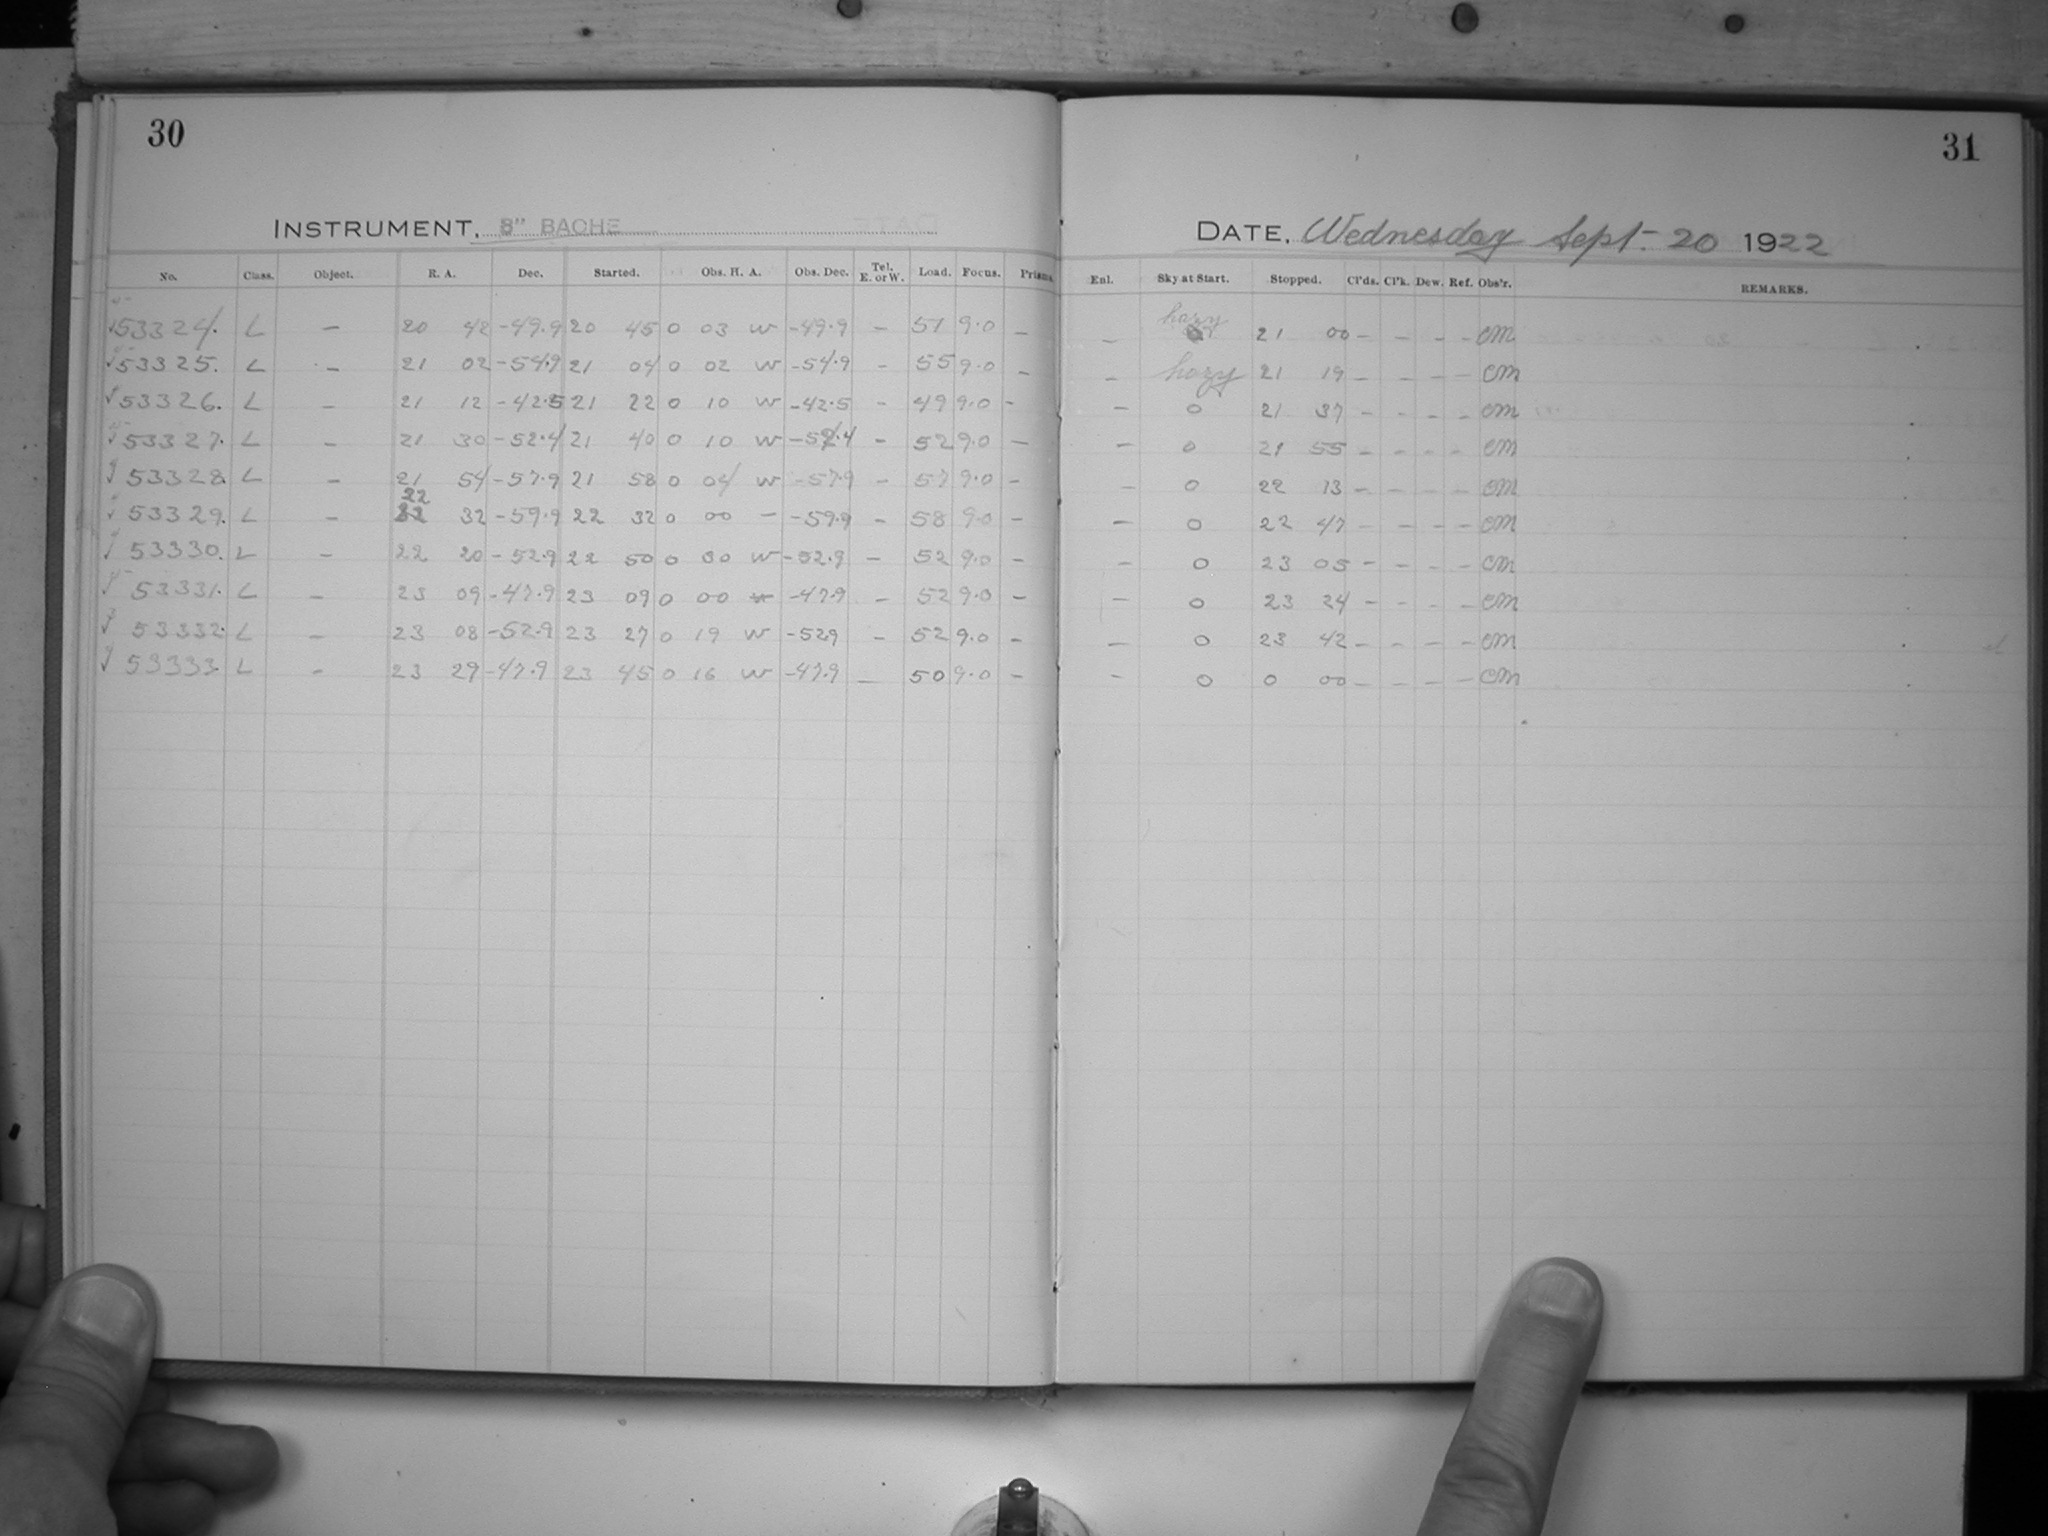 30
INSTRUMENT. 8" BACHE
No. Class. Object. R. A. Dec. Started. Obs. H. A. Obs. Dec. Tel. E. or W. Load. Focus. Prisms
53324. L – 20 42 -49.9 20 45 0 03 W -49.9 – 51 9.0 –
53325. L – 21 02 -54.9 21 04 0 02 W -54.9 – 55 9.0 –
53326. L – 21 12 -42.5 21 22 0 10 W -42.5 – 49 9.0 –
53327. L – 21 30 -52.4 21 40 0 10 W -52.4 – 52 9.0 –
53328. L – 21 54 -57.9 21 58 0 04 W -57.9 – 57 9.0 –
53329. L – 22 32 -59.9 22 32 0 00 – -59.9 – 58 9.0 –
53330. L – 22 20 -52.9 22 50 0 30 W -52.9 – 52 9.0 –
53331. L – 23 09 -47.9 23 09 0 00 -47.9 – 52 9.0 –
53332. L – 23 08 -52.9 23 27 0 19 W -52.9 – 52 9.0 –
53333. L – 23 29 -47.9 23 45 0 16 W -47.9 – 50 9.0 –
31
DATE. Wednesday Sept. 20 1922
Enl. Sky at Start. Stopped. Cl'ds. Cl'k. Dew. Ref. Obs'r. REMARKS.
– hazy 21 00 – – – – CM
– hazy 21 19 – – – – CM
– 0 21 37 – – – – CM
– 0 21 55 – – – – CM
– 0 22 13 – – – – CM
– 0 22 47 – – – – CM
– 0 23 05 – – – – CM
– 0 23 24 – – – – CM
– 0 23 42 – – – – CM
– 0 0 00 – – – – CM